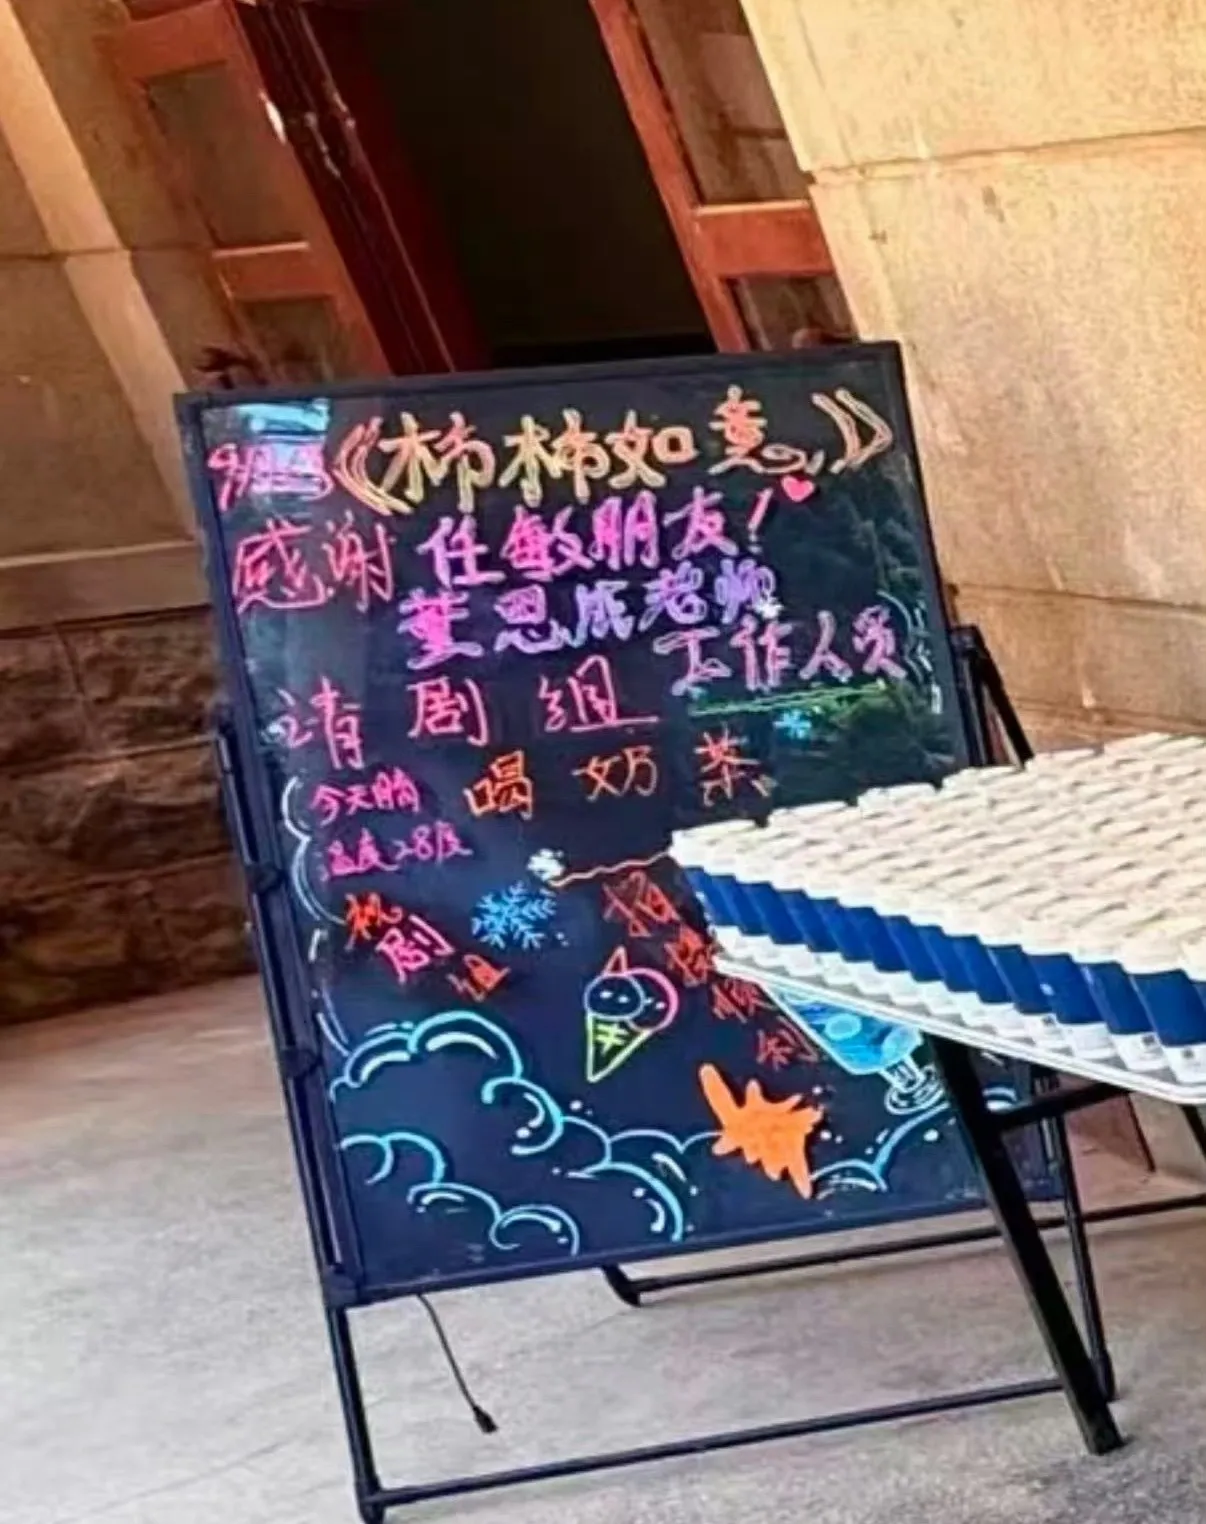 《柿柿如意》
感谢 任敏朋友！
董思成老师
工作人员
请 剧 组
喝 奶 茶
今天
温度28度
祝剧组
拍摄顺利